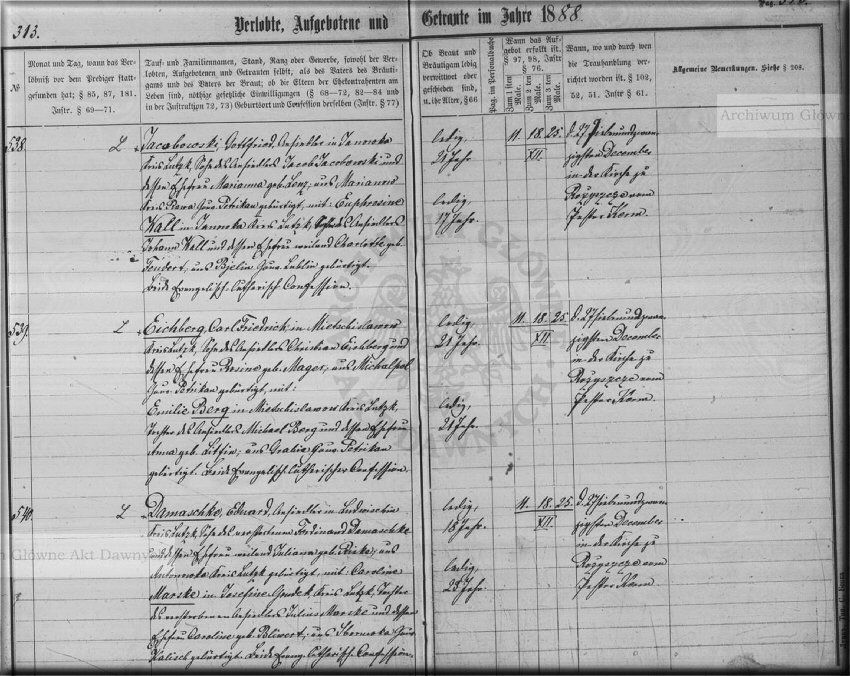 313.
Verlobte, Aufgebotene und Getraute im Jahre 1888.
Pag.
№
Monat und Tag, wann das Ver-
löbniß vor dem Prediger statt-
gefunden hat; § 85, 87, 181.
Instr. § 69—71.
Tauf- und Familiennamen, Stand, Rang oder Gewerbe, sowohl der Ver-
lobten, Aufgebotenen und Getrauten selbst, als des Vaters des Bräuti-
gams und des Vaters der Braut; ob die Eltern der Ehekontrahenten am
Leben sind, nöthige gesetzliche Einwilligungen (§ 68—72, 82—84 und
in der Instruktion 72, 73) Geburtsort und Confession derselben (Instr. § 77)
Ob Braut und
Bräutigam ledig
verwittwet oder
geschieden sind,
u. ihr Alter, § 66
Pag. im Personalbuche
Wann das Auf-
gebot erfüllt ist.
§ 97, 98, Instr.
§ 76.
Zum 1 sten Male.
Zum 2 ten Male.
Zum 3 ten Male.
Wann, wo und durch wen
die Trauhandlung ver-
richtet worden ist. § 102,
52, 51. Instr § 61.
Allgemeine Bemerkungen. Siehe § 208.
538.
L
Jacobowski, Gottfried, Ansiedler in Jannowka
Kreis Lutzk, Sohn des Ansiedlers Jacob Jacobowski und
dessen Ehefrau Marianna geb. Lenz; aus Marianow
Kreis Rawa Gouv. Petrikau gebürtigt, mit: Euphrosine
Kall in Jannowka Kreis Lutzk, Tochter des Ansiedlers
Johann Kall und dessen Ehefrau weiland Charlotte geb.
aus Gouv. Lublin gebürtigt.
Beide Evangelisch-Lutherisch Confession.
ledig,
21 Jahr.
ledig,
17 Jahr.
11. 18. 25.
XII.
d. 27 siebenundzwan-
zigsten December
in der Kirche zu
Rożyszcze vom
Pastor Kerm.
539.
L
Eichberg, Carl Friedrich, in Mietschislawow
Kreis Lutzk, Sohn des Ansiedlers Christian Eichberg und
dessen Ehefrau Rosine geb. Mager, aus Michalpol
Gouv. Petrikau gebürtigt, mit:
Emilie Berg in Mietschislawow Kreis Lutzk,
Tochter des Ansiedlers Michael Berg und dessen Ehefrau
Anna geb. aus Gouv. Petrikau
gebürtigt. Beide Evangelisch Lutherischer Confession.
ledig,
21 Jahr.
ledig,
21 Jahr.
11. 18. 25.
XII.
d. 27 siebenundzwan-
zigsten December
in der Kirche zu
Rożyszcze vom
Pastor Kerm.
540.
L
Damaschke, Eduard, Ansiedler in Ludwischin
Kreis Lutzk, Sohn des verstorbenen Ferdinand Damaschke
und dessen Ehefrau weiland Juliana geb. aus
Antonowka Kreis Lutzk gebürtigt, mit: Caroline
Marske in Josefine Kreis Lutzk, Tochter
des verstorbenen Ansiedlers Julius Marske und dessen
Ehefrau Caroline geb. aus Gouv.
Kalisch gebürtigt. Beide Evang. Lutherisch. Confession.
ledig,
18 Jahr.
ledig,
25 Jahr.
11. 18. 25.
XII.
d. 27 siebenundzwan-
zigsten December
in der Kirche zu
Rożyszcze vom
Pastor Kerm.
Archiwum Główne
Główne Akt Dawnych